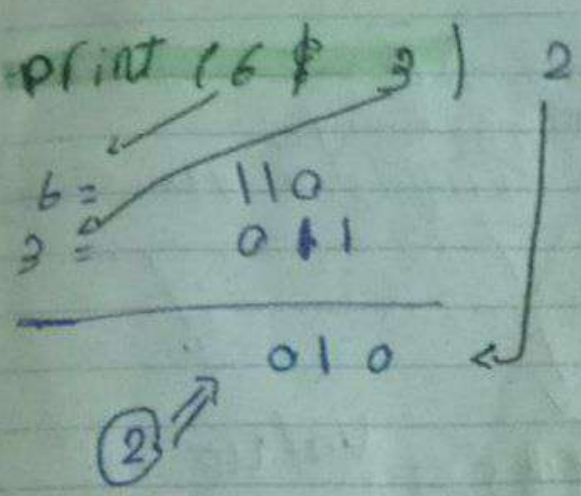 print (6 & 3) 2
6 = 110
3 = 011
010
2